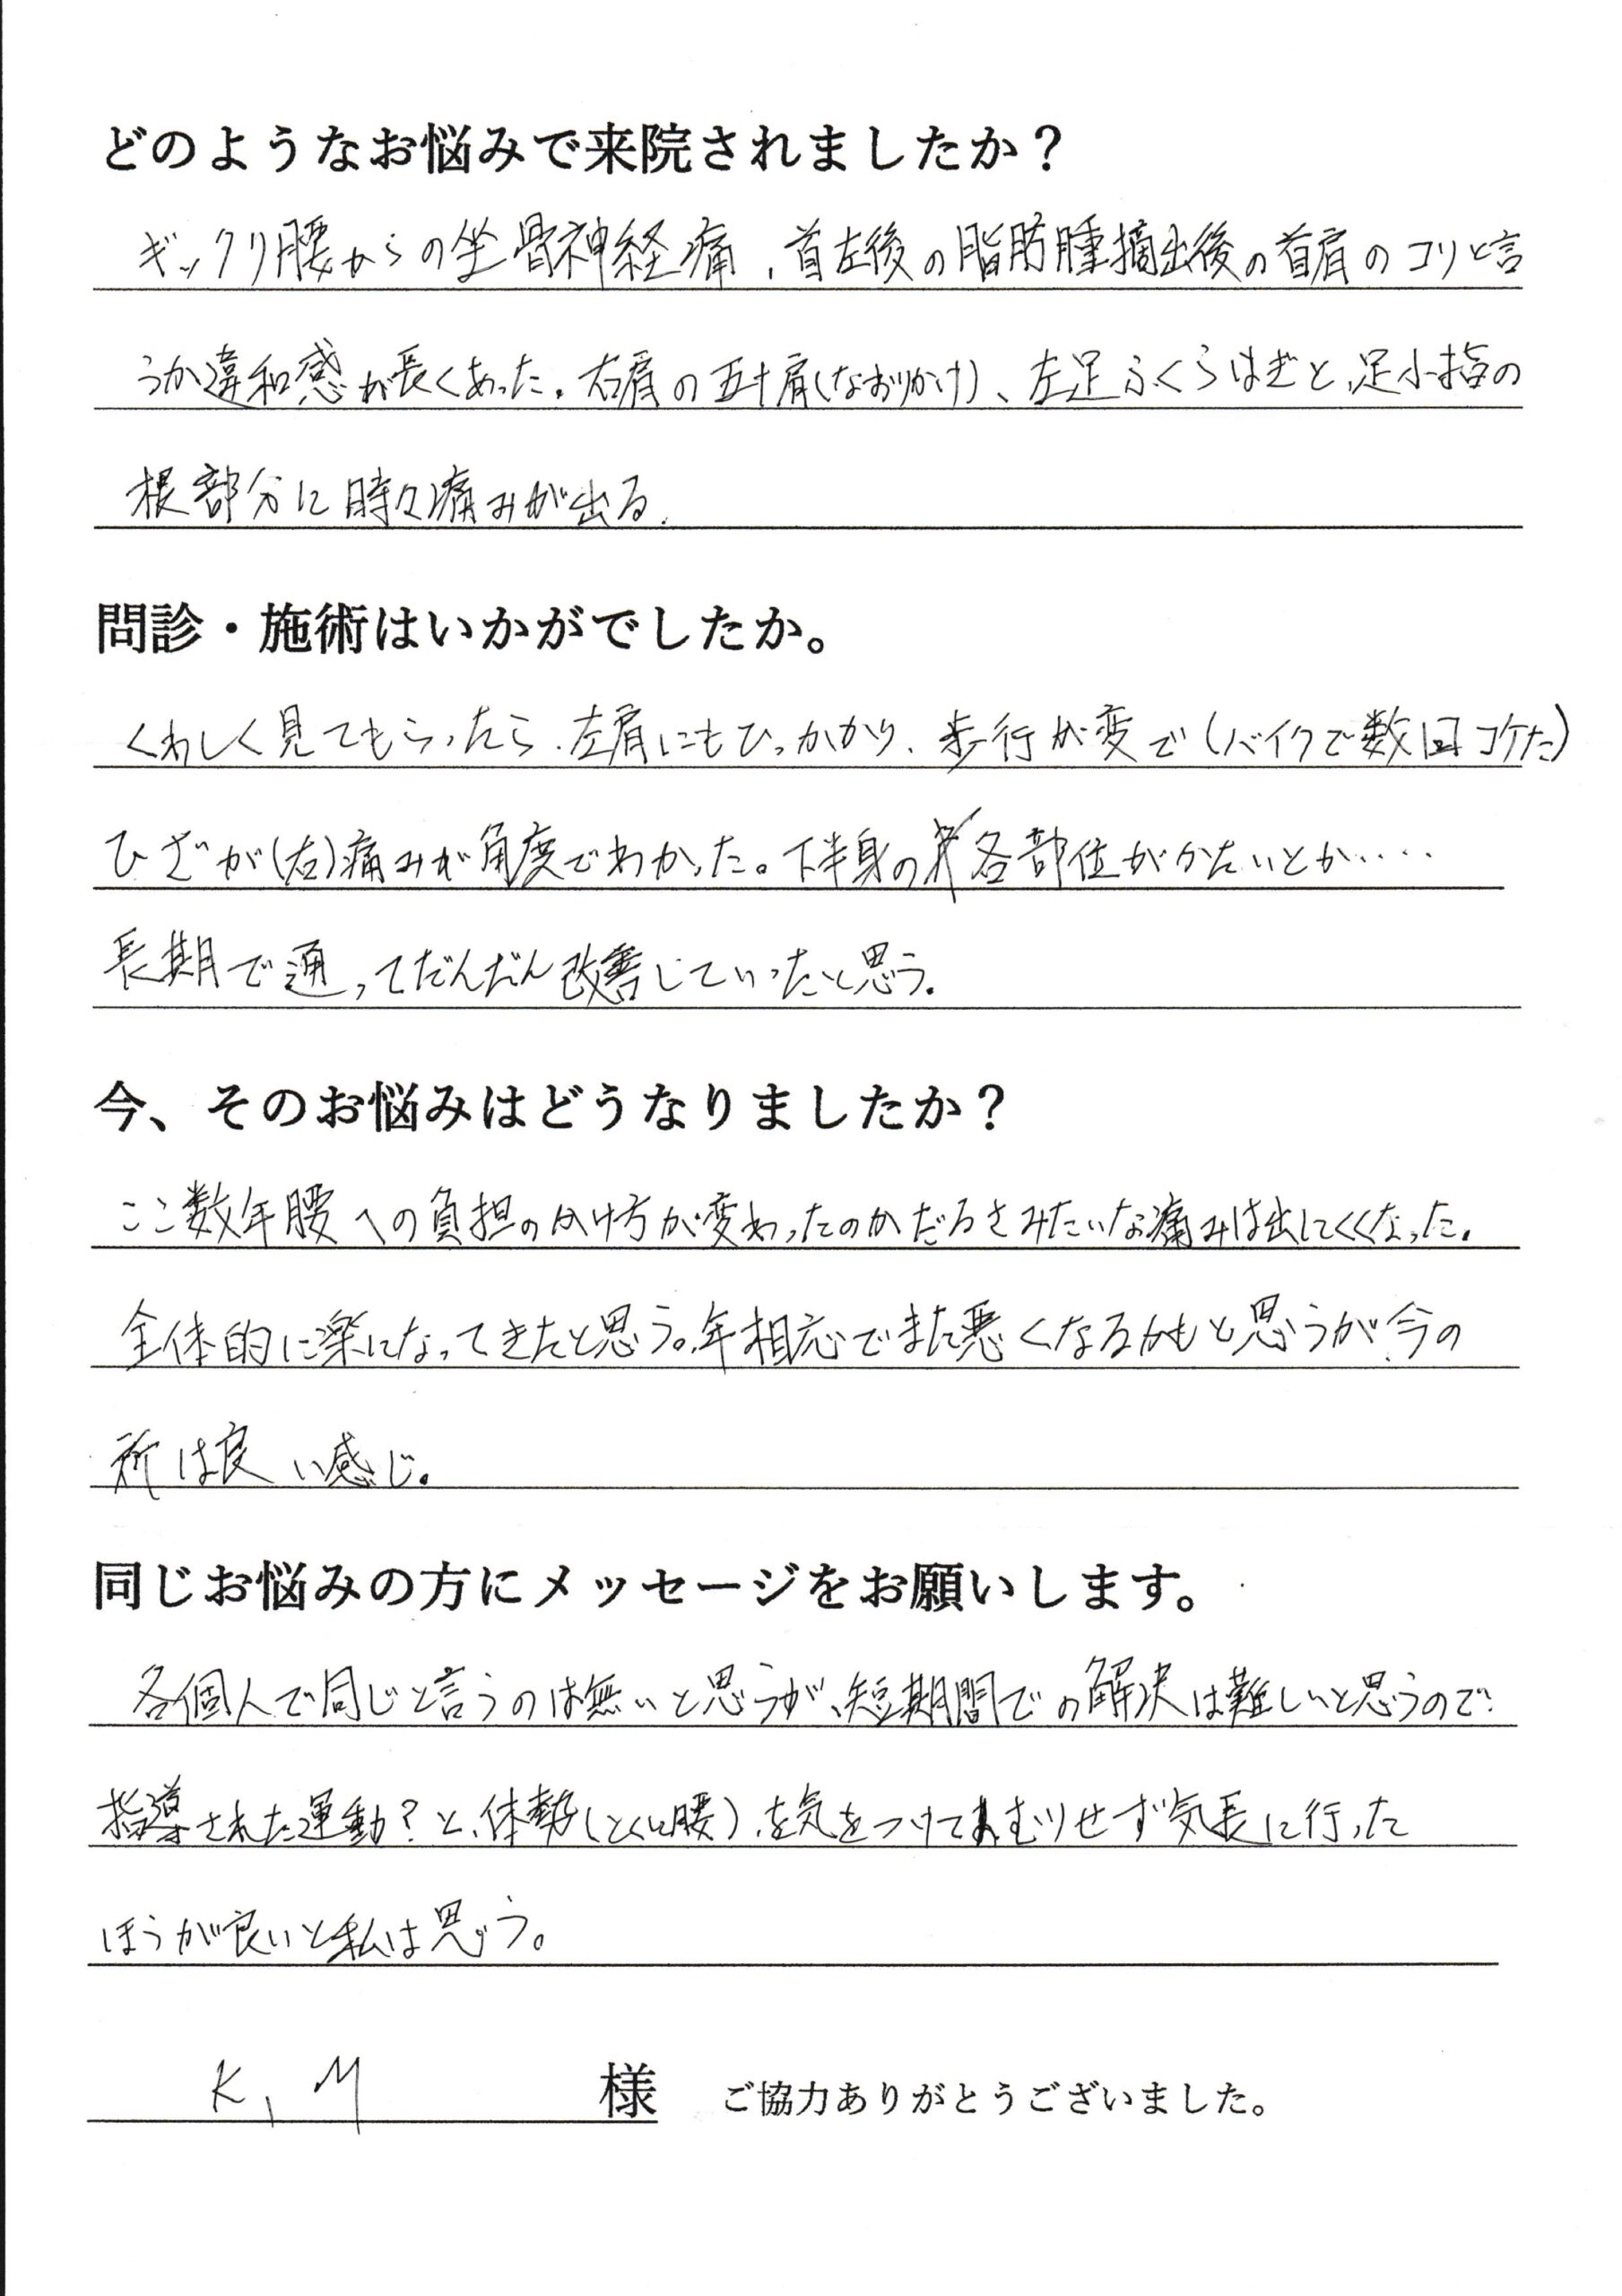 どのようなお悩みで来院されましたか？
ギックリ腰からの坐骨神経痛、首左後の脂肪腫摘出後の首肩のコリと言
うか違和感が長くあった。右肩の五十肩(なおりかけ)、左足ふくらはぎと、足小指の
根部分に時々痛みが出る。
問診・施術はいかがでしたか。
くわしく見てもらったら、左肩にもひっかかり、歩行が変で(バイクで数回コケた)
ひざが(右)痛みが角度でわかった。下半身の各部位がかたいとか‥‥
長期で通ってだんだん改善していったと思う。
今、そのお悩みはどうなりましたか？
ここ数年腰への負担のかけ方が変わったのかだるさみたいな痛みは出にくくなった。
全体的に楽になってきたと思う。年相応でまた悪くなるかもと思うが、今の
所は良い感じ。
同じお悩みの方にメッセージをお願いします。
各個人で同じと言うのは無いと思うが、短期間での解決は難しいと思うので
指導された運動？と、体勢(とくに腰)を気をつけてむりせず気長に行った
ほうが良いと私は思う。
K, M 様 ご協力ありがとうございました。